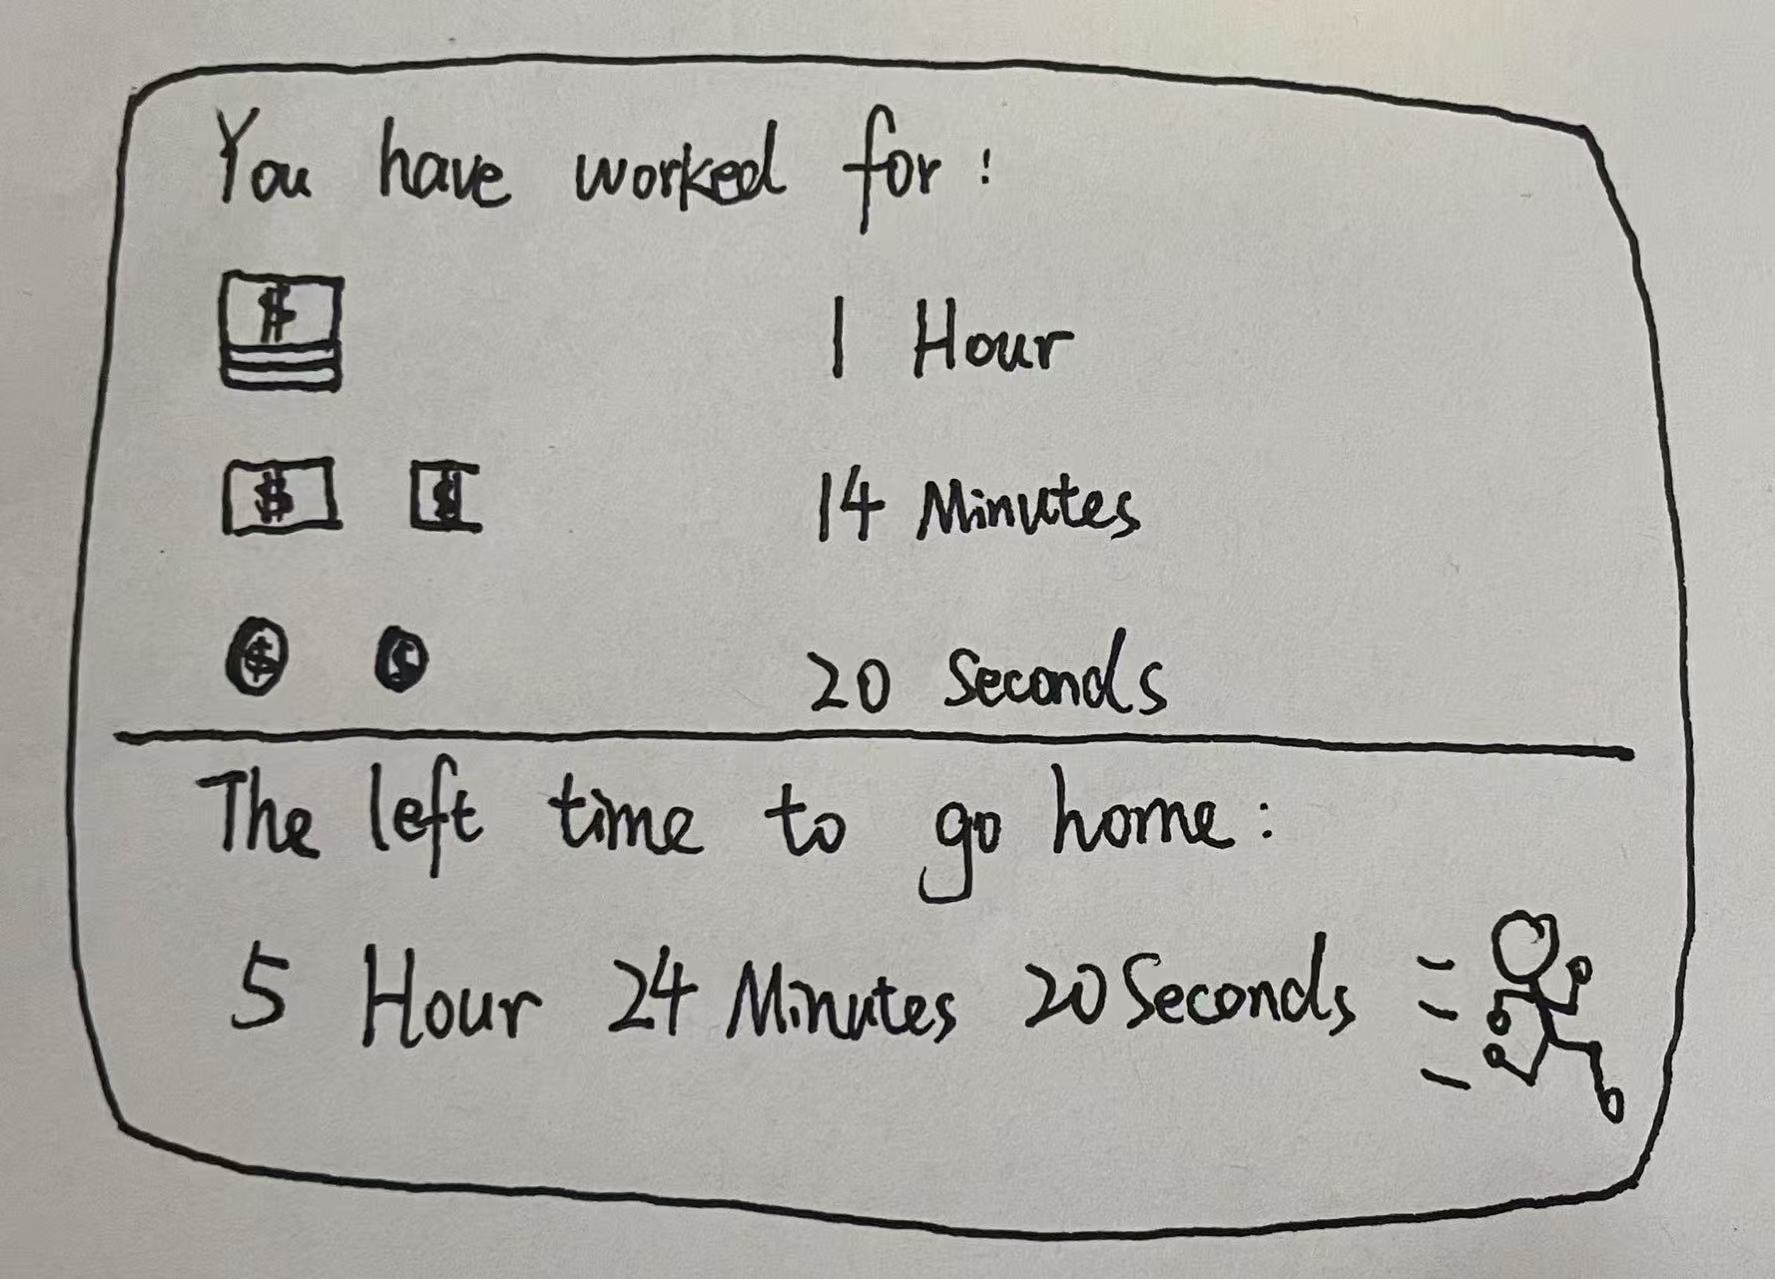 You have worked for:
$
1 Hour
$ $
14 Minutes
$ $
20 Seconds
The left time to go home:
5 Hour 24 Minutes 20 Seconds